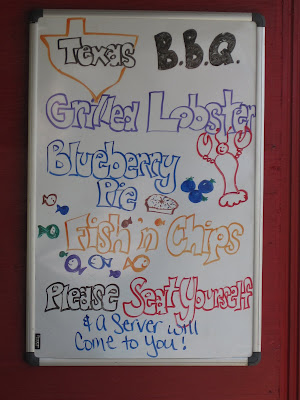 Texas B.B.Q.
Grilled Lobster
Blueberry
Pie
Fish 'n Chips
Please Seat Yourself
& A Server will
Come to You!